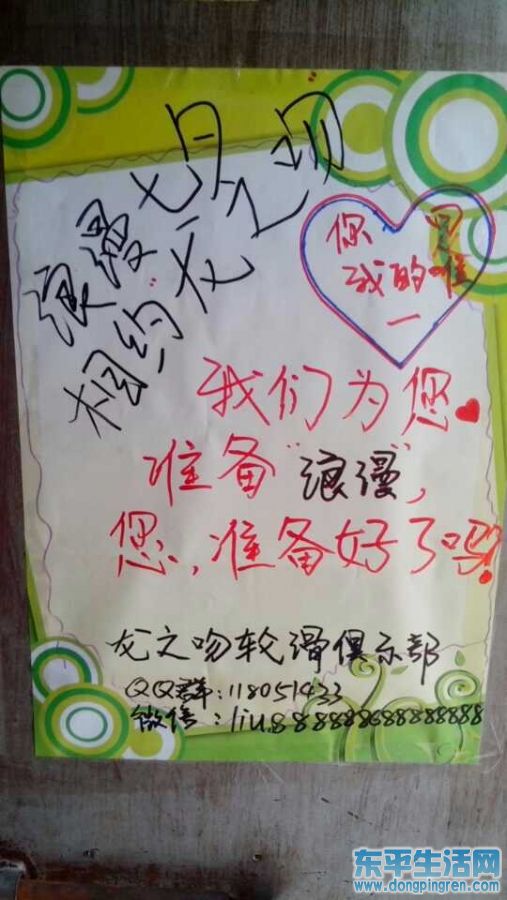 浪漫七月
相约龙之吻
您是
我的唯
一
我们为您
准备"浪漫",
您,准备好了吗?
龙之吻轮滑俱乐部
QQ群:118051433
微信:liu888888688888888
东平生活网
www.dongpingren.com